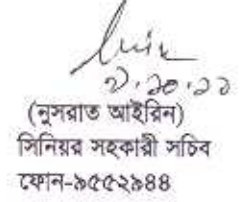 ২.১০.১১
(নুসরাত আইরিন)
সিনিয়র সহকারী সচিব
ফোন-৯৫৫২৯৪৪